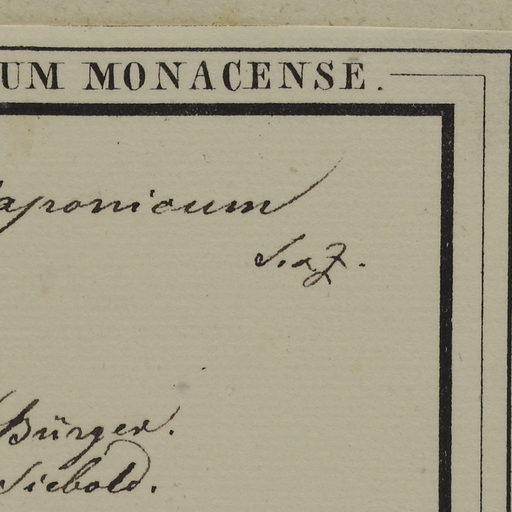 UM MONACENSE.
aponicum
S. & Z.
Bürger.
Siebold.